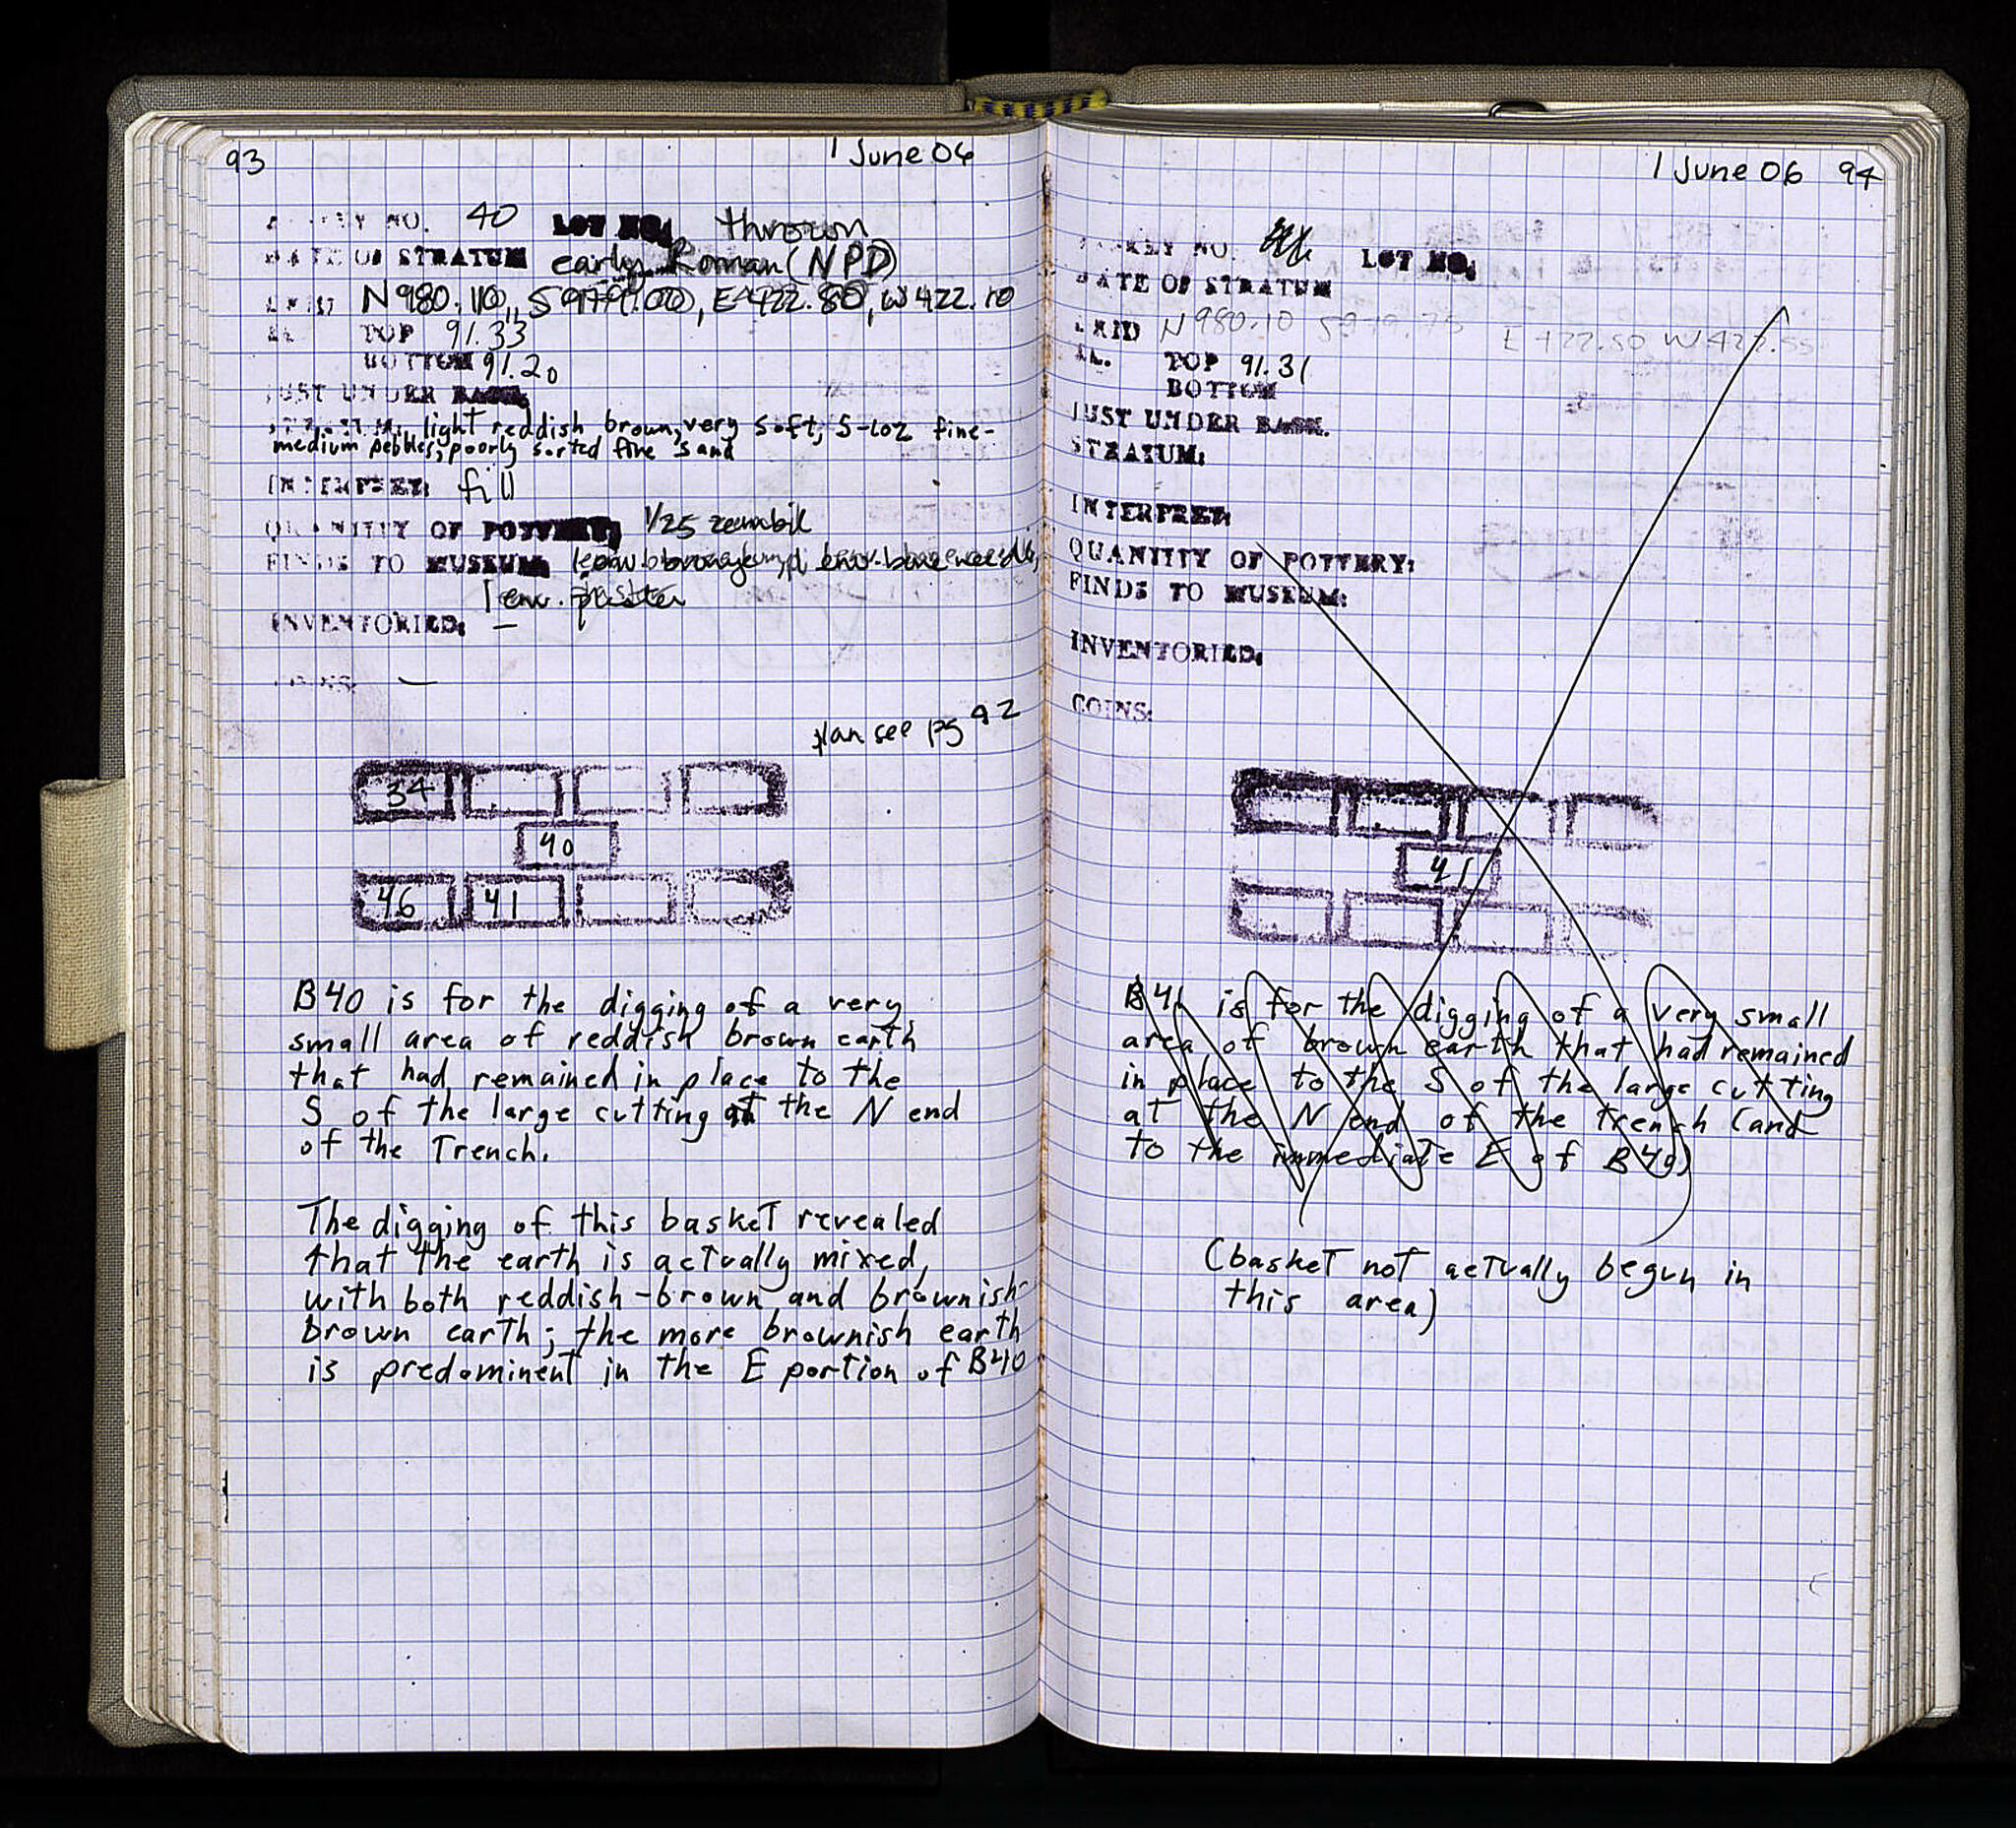 93
1 June 06
BASKET NO. 40 LOT NO: thrown
DATE OF STRATUM early Roman (NPD)
GRID N980.10, S979.00, E422.80, W422.10
EL. TOP 91.33
BOTTOM 91.20
JUST UNDER BASK.
STRATUM: light reddish brown, very soft, 5-10% fine-
medium pebbles, poorly sorted fine sand
INTERPRET: fill
QUANTITY OF POTTERY: 1/25 zembil
FINDS TO MUSEUM: env. bone needle,
1 env. plaster
INVENTORIED: —
COINS: —
plan see pg 92
34
40
46 41
B40 is for the digging of a very
small area of reddish brown earth
that had remained in place to the
S of the large cutting at the N end
of the Trench.
The digging of this basket revealed
that the earth is actually mixed,
with both reddish-brown and brownish-
brown earth; the more brownish earth
is predominent in the E portion of B40
1 June 06 94
BASKET NO. LOT NO:
DATE OF STRATUM
GRID N980.10 S979.75 E422.50 W422.55
EL. TOP 91.31
BOTTOM
JUST UNDER BASK.
STRATUM:
INTERPRET:
QUANTITY OF POTTERY:
FINDS TO MUSEUM:
INVENTORIED:
COINS:
41
B41 is for the digging of a very small
area of brown earth that had remained
in place to the S of the large cutting
at the N end of the trench (and
to the immediate E of B40)
(basket not actually begun in
this area)